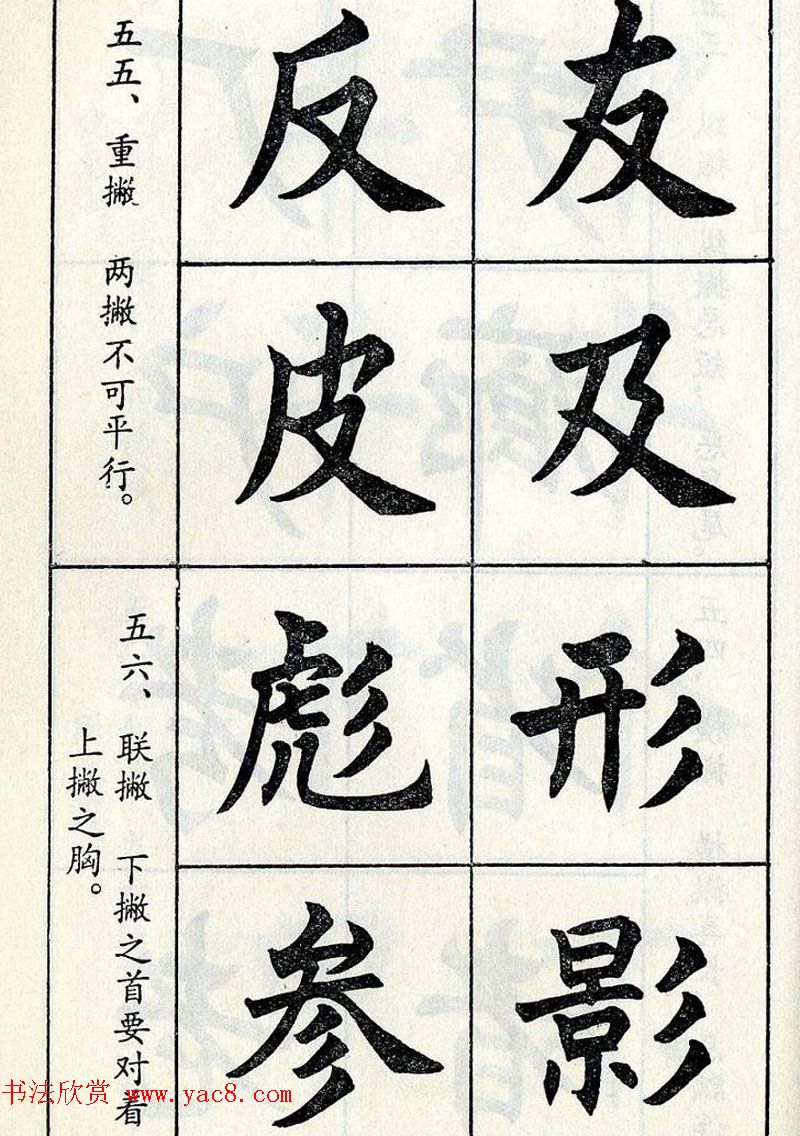 友及
反皮
五五、重撇 两撇不可平行。
形影
彪参
五六、联撇 下撇之首要对看
上撇之胸。
书法欣赏 www.yac8.com